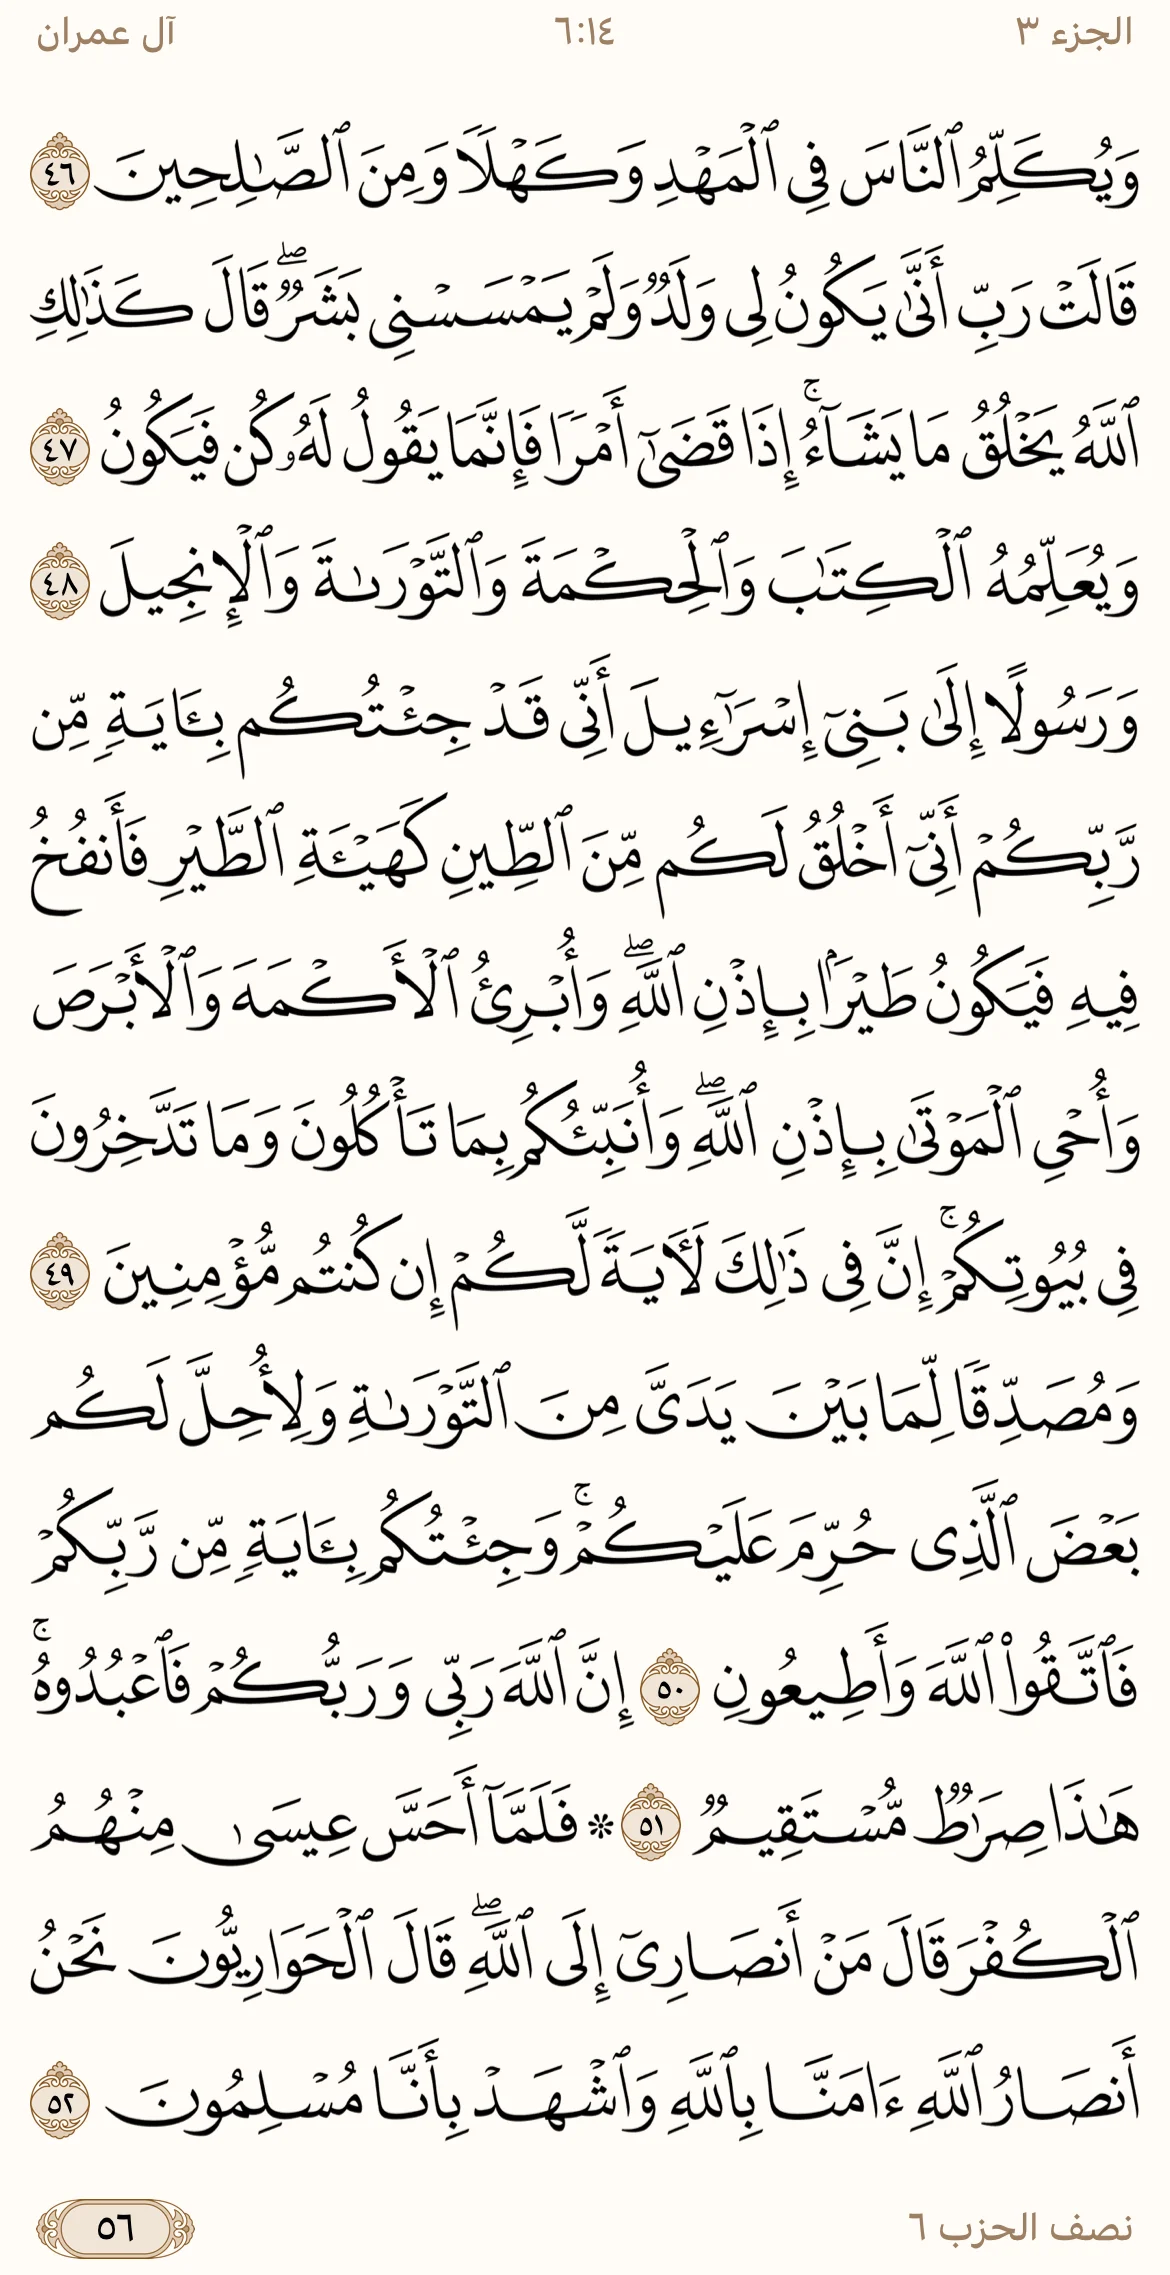 الجزء ٣
٦:١٤
آل عمران
وَيُكَلِّمُ ٱلنَّاسَ فِى ٱلْمَهْدِ وَكَهْلًا وَمِنَ ٱلصَّـٰلِحِينَ ٤٦
قَالَتْ رَبِّ أَنَّىٰ يَكُونُ لِى وَلَدٌ وَلَمْ يَمْسَسْنِى بَشَرٌ ۖ قَالَ كَذَٰلِكِ
ٱللَّهُ يَخْلُقُ مَا يَشَآءُ ۚ إِذَا قَضَىٰٓ أَمْرًا فَإِنَّمَا يَقُولُ لَهُۥ كُن فَيَكُونُ ٤٧
وَيُعَلِّمُهُ ٱلْكِتَـٰبَ وَٱلْحِكْمَةَ وَٱلتَّوْرَىٰةَ وَٱلْإِنجِيلَ ٤٨
وَرَسُولًا إِلَىٰ بَنِىٓ إِسْرَٰٓءِيلَ أَنِّى قَدْ جِئْتُكُم بِـَٔايَةٍ مِّن
رَّبِّكُمْ أَنِّىٓ أَخْلُقُ لَكُم مِّنَ ٱلطِّينِ كَهَيْـَٔةِ ٱلطَّيْرِ فَأَنفُخُ
فِيهِ فَيَكُونُ طَيْرًۢا بِإِذْنِ ٱللَّهِ ۖ وَأُبْرِئُ ٱلْأَكْمَهَ وَٱلْأَبْرَصَ
وَأُحْىِ ٱلْمَوْتَىٰ بِإِذْنِ ٱللَّهِ ۖ وَأُنَبِّئُكُم بِمَا تَأْكُلُونَ وَمَا تَدَّخِرُونَ
فِى بُيُوتِكُمْ ۚ إِنَّ فِى ذَٰلِكَ لَـَٔايَةً لَّكُمْ إِن كُنتُم مُّؤْمِنِينَ ٤٩
وَمُصَدِّقًا لِّمَا بَيْنَ يَدَىَّ مِنَ ٱلتَّوْرَىٰةِ وَلِأُحِلَّ لَكُم
بَعْضَ ٱلَّذِى حُرِّمَ عَلَيْكُمْ ۚ وَجِئْتُكُم بِـَٔايَةٍ مِّن رَّبِّكُمْ
فَٱتَّقُوا۟ ٱللَّهَ وَأَطِيعُونِ ٥٠ إِنَّ ٱللَّهَ رَبِّى وَرَبُّكُمْ فَٱعْبُدُوهُ ۚ
هَـٰذَا صِرَٰطٌ مُّسْتَقِيمٌ ٥١ ۞ فَلَمَّآ أَحَسَّ عِيسَىٰ مِنْهُمُ
ٱلْكُفْرَ قَالَ مَنْ أَنصَارِىٓ إِلَى ٱللَّهِ ۖ قَالَ ٱلْحَوَارِيُّونَ نَحْنُ
أَنصَارُ ٱللَّهِ ءَامَنَّا بِٱللَّهِ وَٱشْهَدْ بِأَنَّا مُسْلِمُونَ ٥٢
نصف الحزب ٦
٥٦